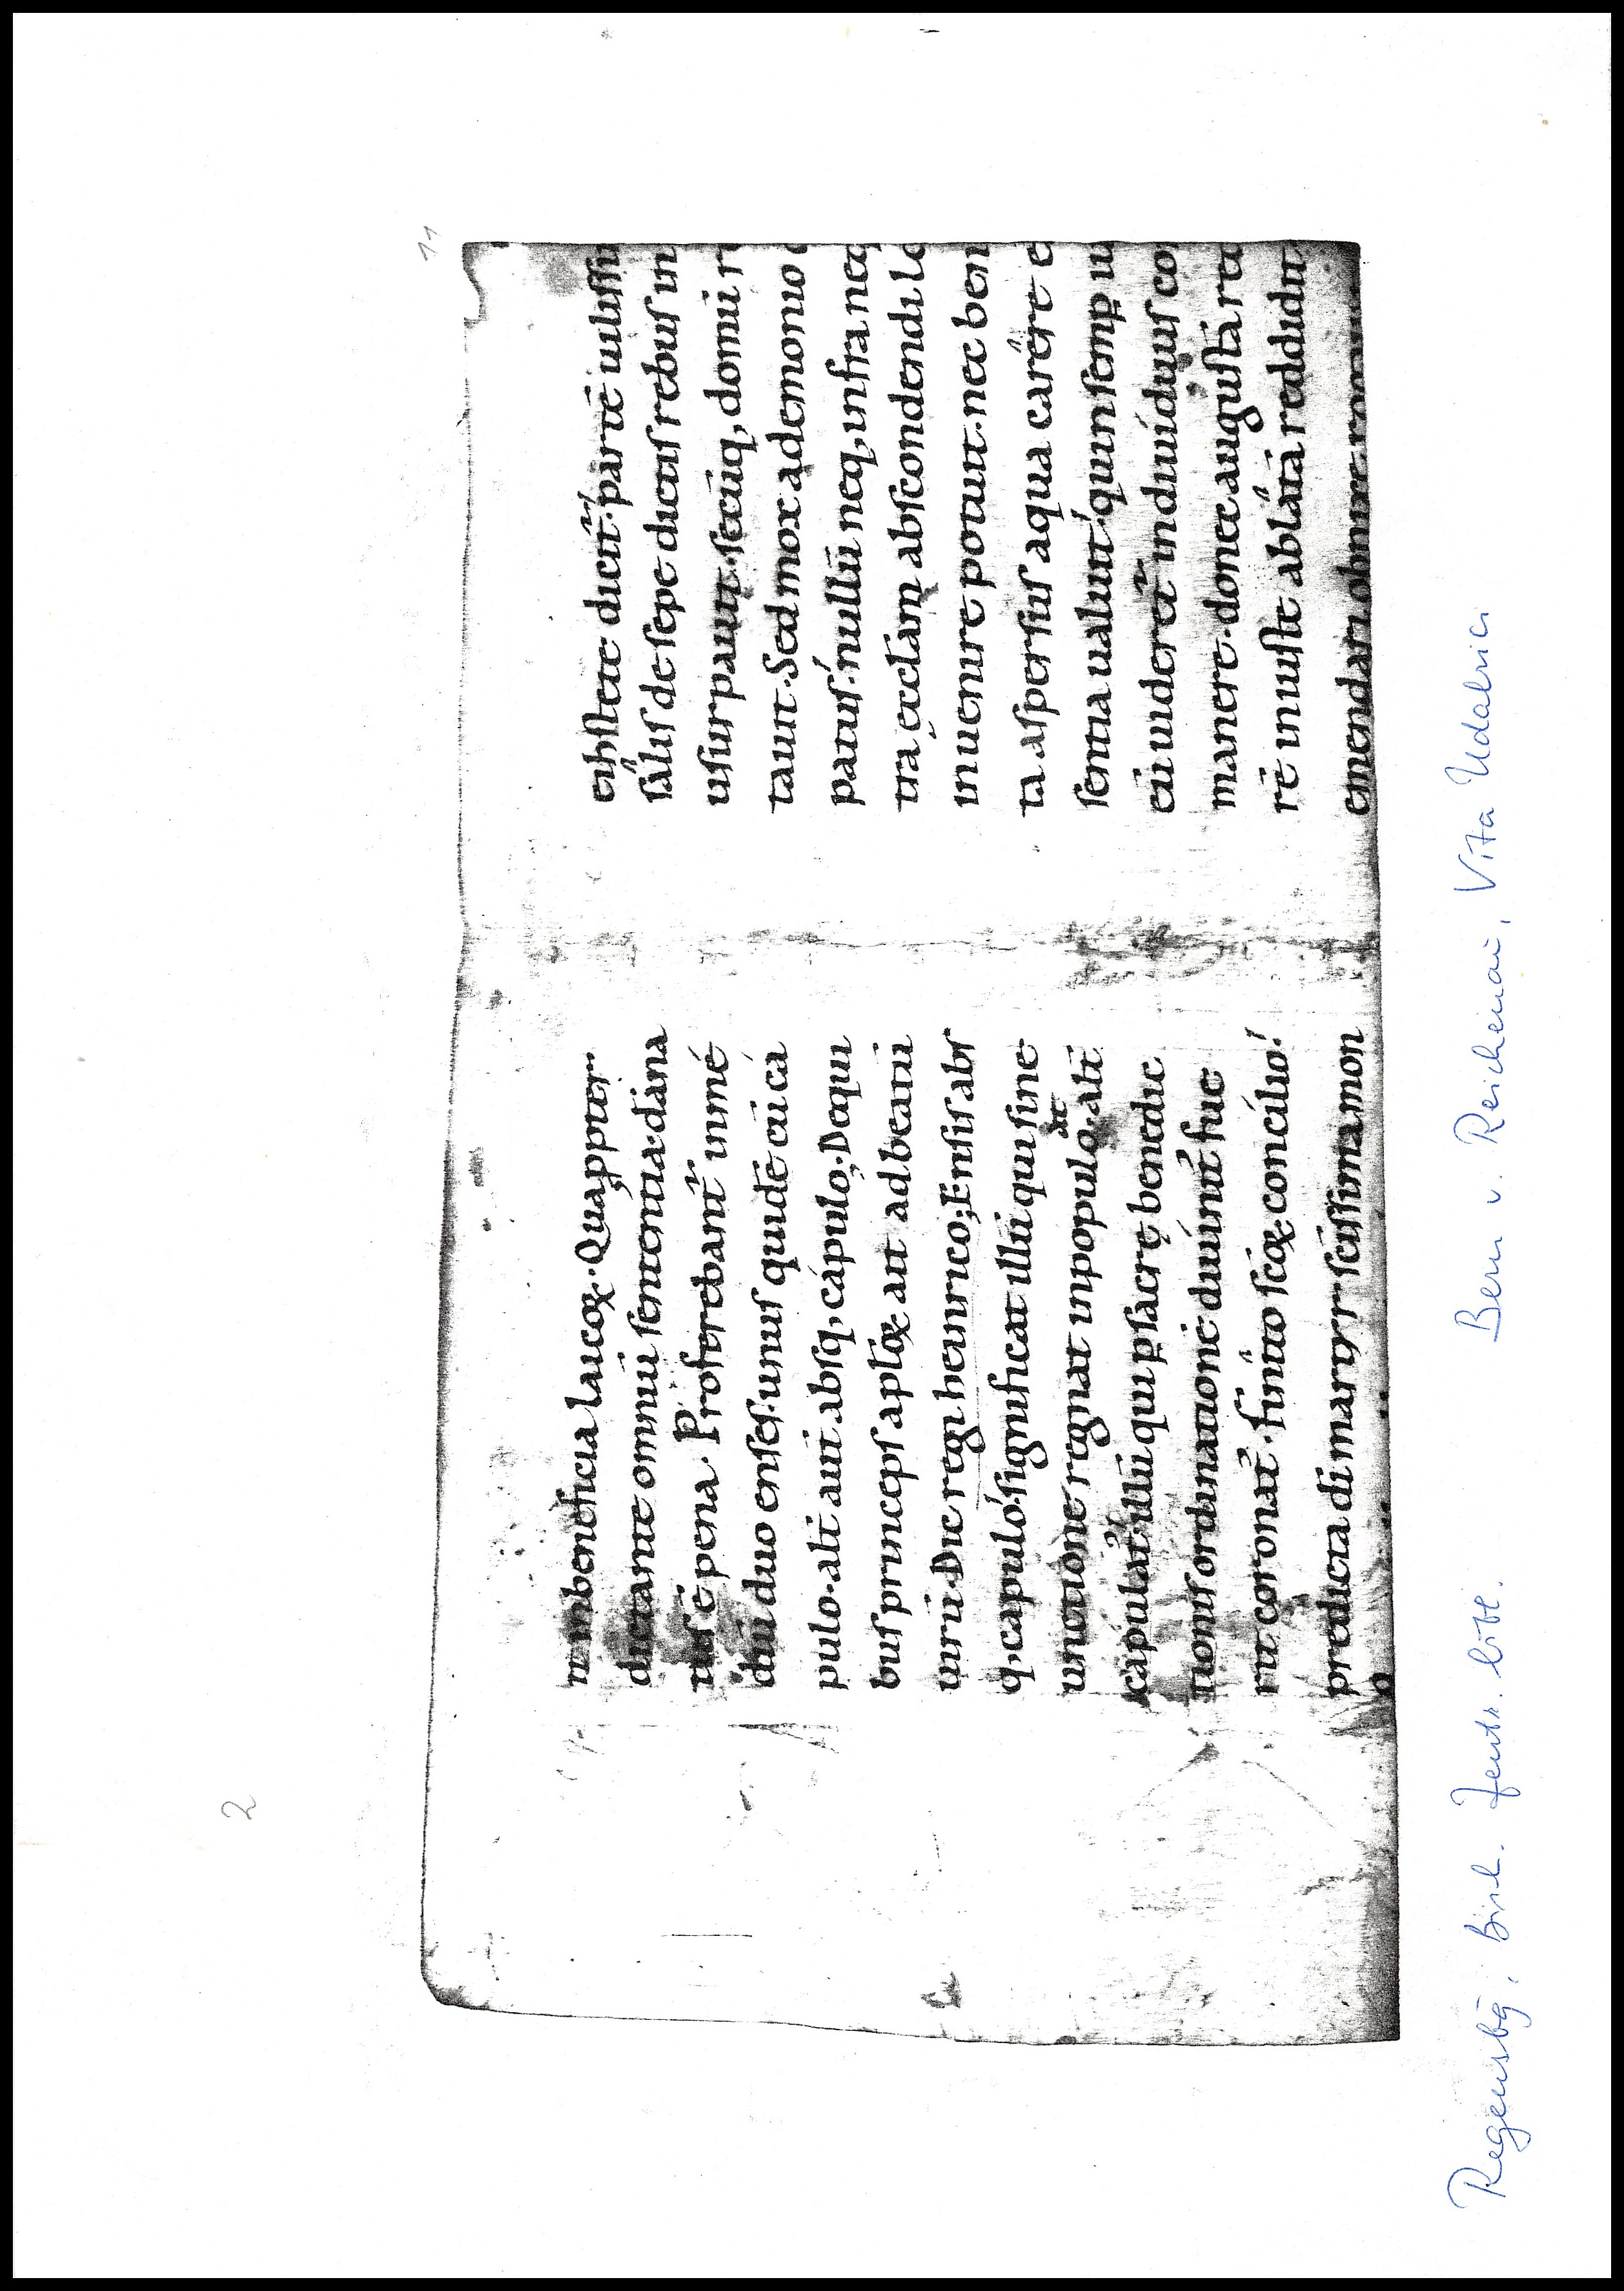 2
11
in beneficia laicoꝝ. Quappter
dictante omniū sententia. dāna
tus ē pena. Proferebant᷑ inmé
diū duo enses. unus quidē cū ca
pulo. alt̄ aut̄ absq; capulo. Dequi
bus princeps aplōꝝ ait ad beatū
uirū. Dic regi heinrico; Ensis abs
q; capulo. significat illū qui sine
unctione regnat in populo. alt̄
capulat᷑ illū qui ꝑ sacrę benedic
tionis ordinationē diuinit᷑ fue
rit coronat᷑. finito scōꝝ concilio.
predicta di martyr scīssima mon
existere dicit᷑. partē uilissi
salis de sepe dictis rebus in
usurpauit. secūq; domū r
tauit. Sed mox ademonio
patus. nullū neq; infra neq
tra ęcclam abscondendi lo
inuenire potuit. nec ben
ta aspersus aqua carere
sentia ualuit. quin semꝑ u
cū uideret᷑ indiuiduus co
manere. donec augustā re
rē iniuste ablatā reddidit
Regensbg, Bisch. Zentr. bibl.
Bern v. Reichenau, Vita Udalrici